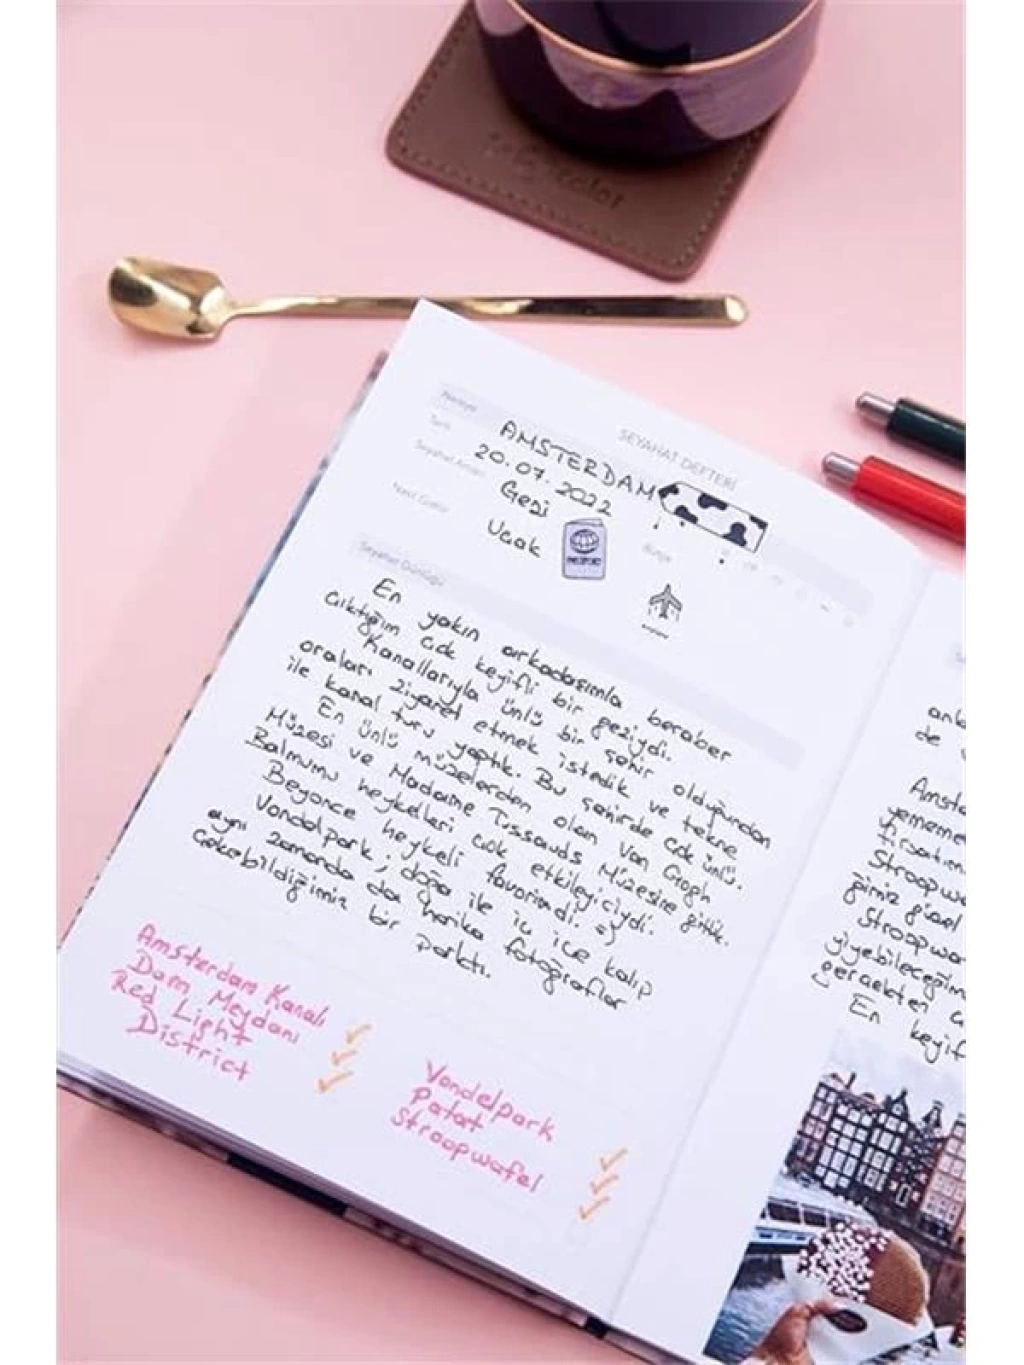 SEYAHAT DEFTERİ
Nereye AMSTERDAM
Tarih 20.07.2022
Seyahat Amacı Gezi
Nasıl Gidilir Ucak
Bütçe
Seyahat Günlüğü
En yakın arkadaşımla beraber
çıktığım çok keyifli bir geziydi.
Kanallarıyla ünlü bir şehir olduğundan
oraları ziyaret etmek istedik ve tekne
ile kanal turu yaptık. Bu şehirde çok ünlü.
En ünlü müzelerden olan Van Gogh
Müzesi ve Madame Tussauds Müzesine gittik.
Balmumu heykelleri çok etkileyiciydi.
Beyonce heykeli favorimdi. :)
Vondelpark; doğa ile iç içe kalıp
aynı zamanda da harika fotoğraflar
çekebildiğimiz bir parktı.
Amsterdam Kanalı
Dam Meydanı
Red Light
District
Vondelpark
Patat
Stroopwafel
de
Amste
yememe
fırsatım
Stroopwa
ğimiz güzel
Stroopwa
yiyebileceğim
gerçekten
En keyif